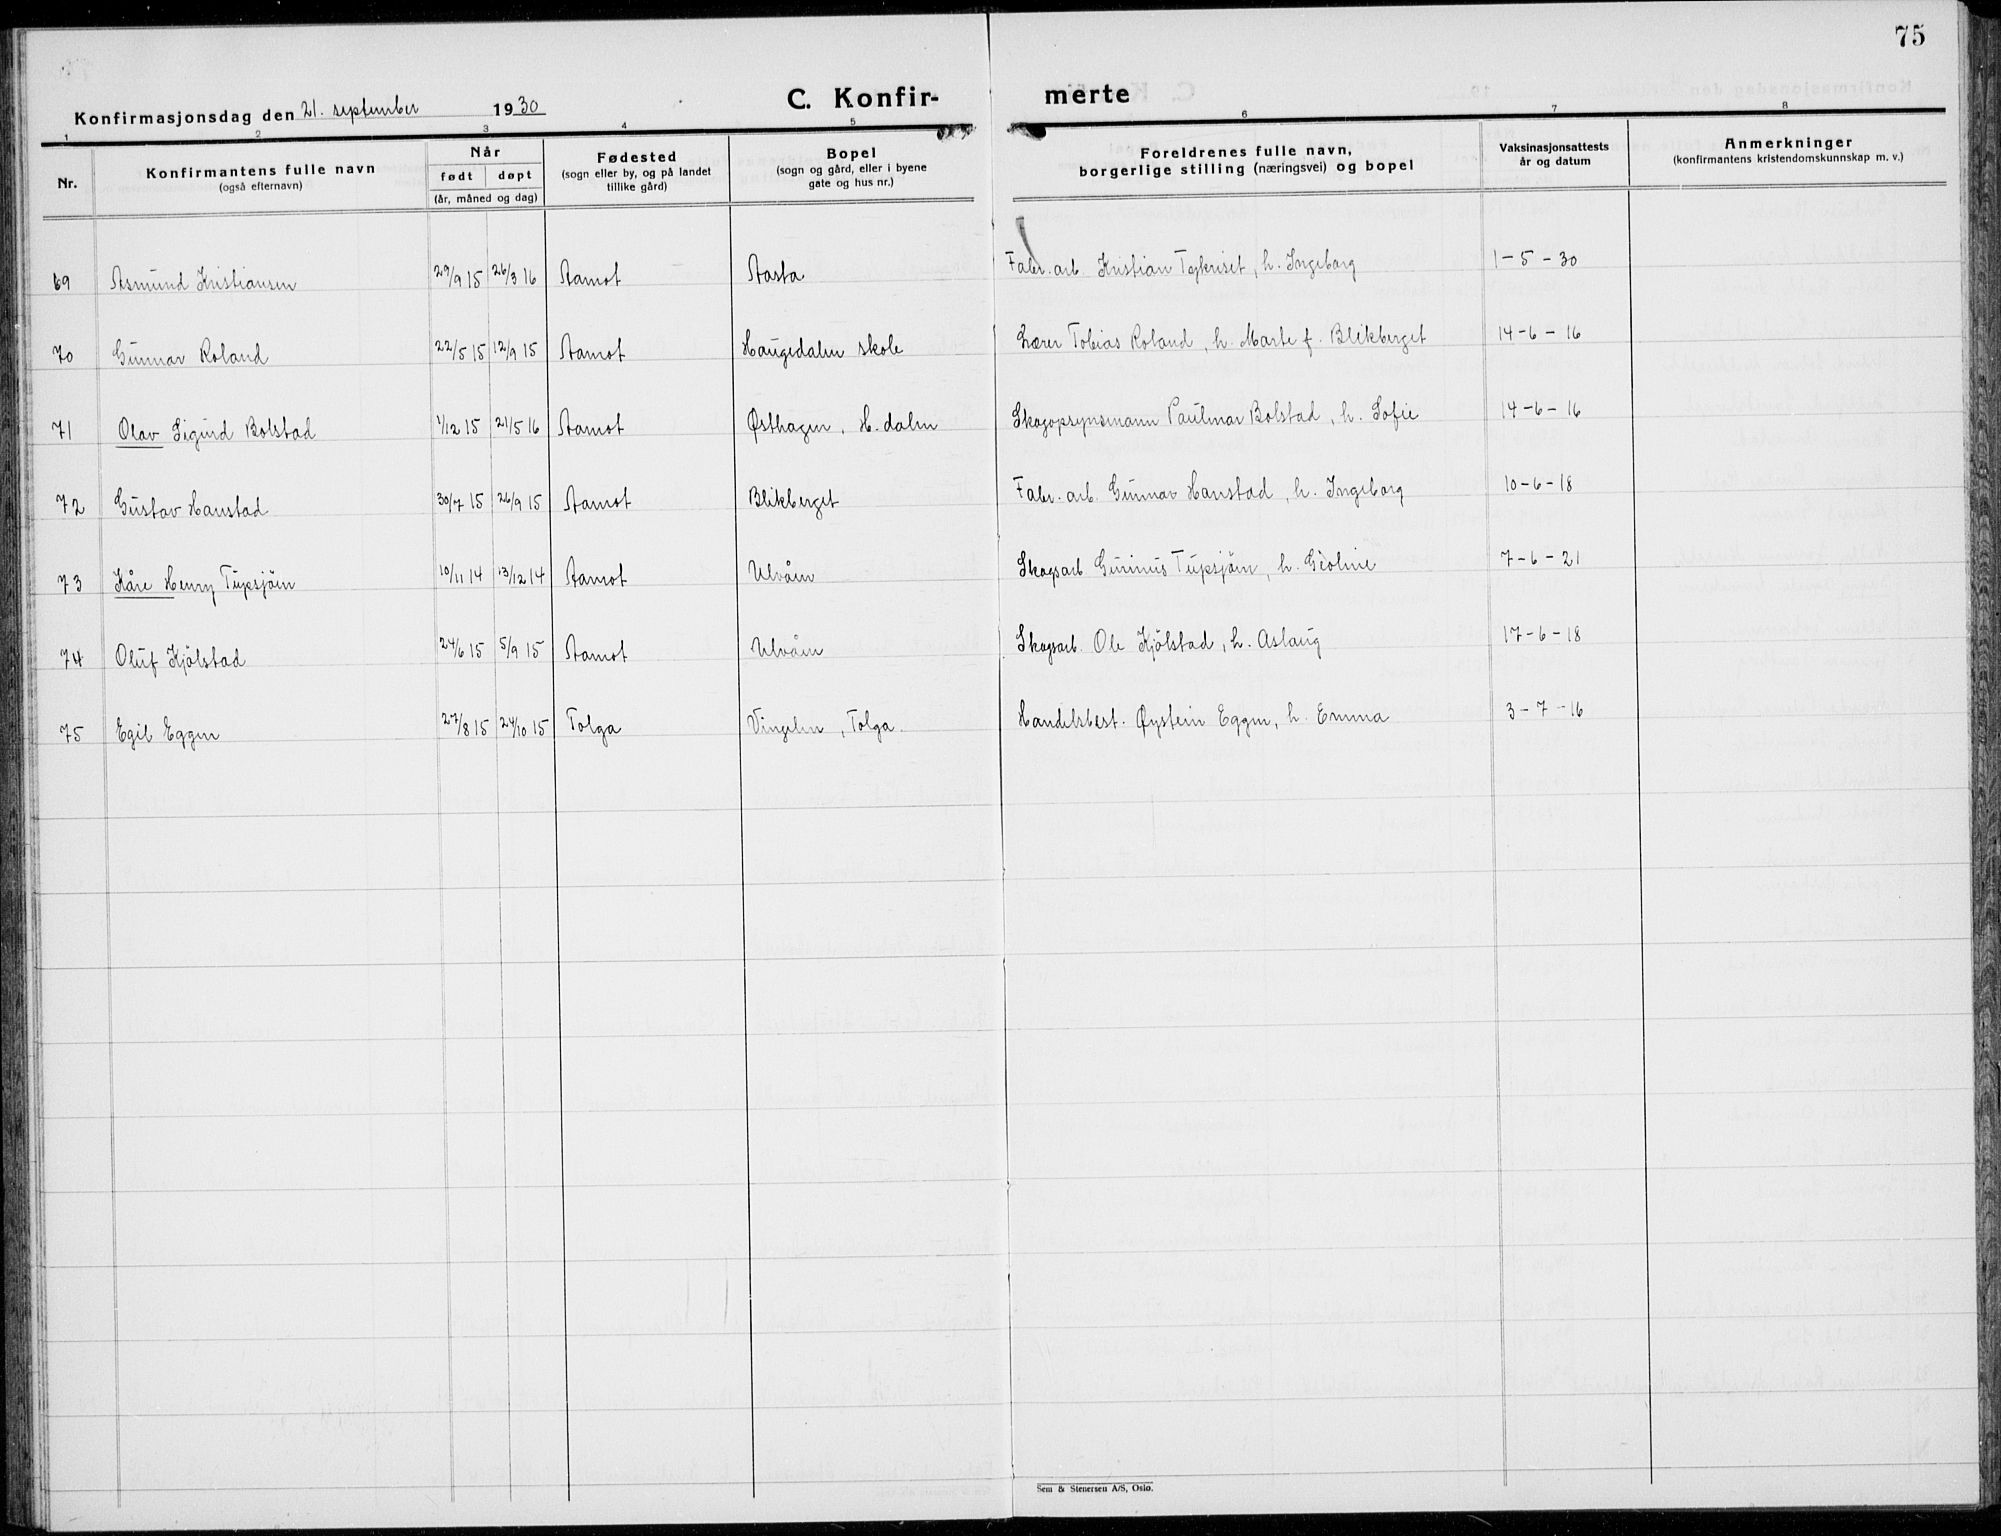 75
Konfirmasjonsdag den 21. september 1930 C. Konfir- merte
1 2 3 4 5 6 7 8
Nr. Konfirmantens fulle navn (også efternavn) Når født døpt (år, måned og dag) Fødested (sogn eller by, og på landet tillike gård) Bopel (sogn og gård, eller i byene gate og hus nr.) Foreldrenes fulle navn, borgerlige stilling (næringsvei) og bopel Vaksinasjonsattests år og datum Anmerkninger (konfirmantens kristendomskunnskap m. v.)
69 Asmund Kristiansen 29/9 15 26/3 16 Aamot Aasta Fabr. arb. Kristian h. Ingeborg 1-5-30
70 Gunnar Roland 22/5 15 12/9 15 Aamot Haugedalen skole Lærer Tobias Roland, h. Marte f. Blikberget 14-6-16
71 Olav Sigurd Bolstad 1/12 15 21/5 16 Aamot Østhagen, H. dalen Skogopsynsmann Paulmar Bolstad, h. Sofie 14-6-16
72 Gustav Hanstad 30/7 15 26/9 15 Aamot Blikberget Fabr. arb. Gunnar Hanstad, h. Ingeborg 10-6-18
73 Kåre Henry Tupsjöen 10/11 14 13/12 14 Aamot Ulvåen Skogsarb Gunnus Tupsjöen, h. Geoline 7-6-21
74 Oluf Kjölstad 24/6 15 5/9 15 Aamot Ulvåen Skogsarb. Ole Kjölstad, h. Aslaug 17-6-18
75 Egil Eggen 27/8 15 24/10 15 Tolga Vingelen, Tolga. Handelsbest. Øystein Eggen, h. Emma 3-7-16
Sem & Stenersen A/S, Oslo.